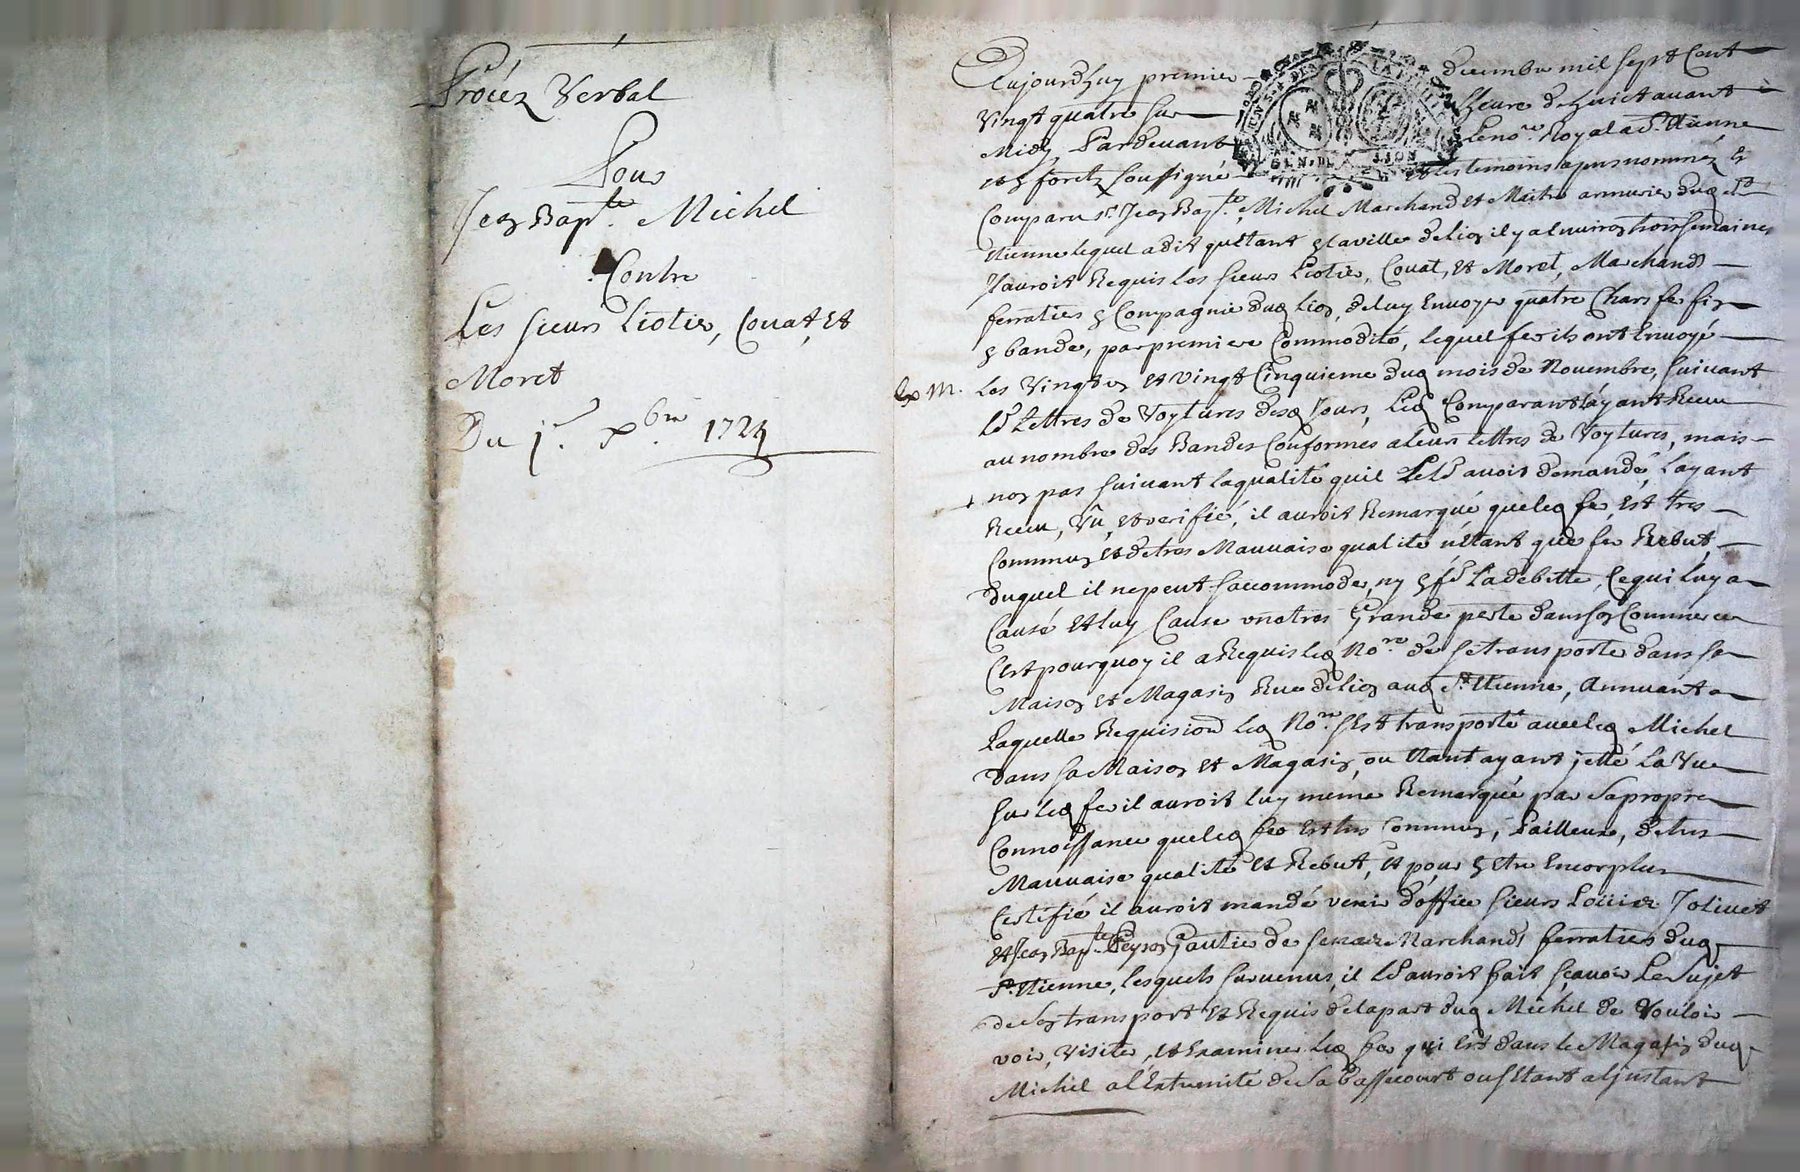 Procez Verbal
Pour
Jean Bapte. Michel
Contre
Les sieurs Liotier, Couat, Et
Moret
Du 1er. Xbre 1724
Aujourdhuy premier decembre mil sept Cent
Vingt quatre sur heure de huict avant
Midy, Pardevant Le nore. Royal a St. Etienne
en forez soussigné et les temoins apres nommez Est
Comparu sr. Jean Bapte. Michel Marchand et Maitre armurier dud St
Etienne lequel a dit qu'etant en la ville de Lion il y a environ trois semaines
Jl auroit Requis les sieurs Liotier, Couat, et Moret, Marchands
ferratiers en Compagnie dud Lion, de luy Envoyer quatre Chars fer fin
en bande, par premiere Commodité, lequel fer ils ont Envoyé
Les Vingt et Vingt Cinquieme dud mois de Novembre, suivant
Ld Lettres de Voytures desd Jours, Led Comparant layant Receu
au nombre des Bandes Conformes a leurs lettres de Voytures, mais
non pas suivant la qualité quil avoit demandé, Layant
Receu, Vû, et verifié, il auroit Remarqué que led fer, Est tres
Commun et de tres Mauvaise qualité n'étant que fer Rebut,
duquel il ne peut saccommoder, ny en la debitte, Ce qui luy a
Causé et luy Cause une tres Grande perte dans son Commerce
C'est pourquoy il a Requis led Nore. de se transporter dans sa
Maison et Magasin Rue de Lion aud St. Etienne, Annuant a
Laquelle Requision led Nore sest transporté avec led Michel
dans sa Maison et Magasin, ou Etant ayant jetté La Vue
sur led fer il auroit luy meme Remarqué par sa propre
Connoissance que led fer est tres Commun, Pailleux, de tres
Mauvaise qualité et Rebut, et pour en Etre Encor plus
Certifié il auroit mandé venir d'office sieurs Jolivet
et Jean Bapte. Peyron Gautier de Marchands ferratiers dud
St. Etienne, lesquels survenus, il Ld auroit fait sçavoir Le Sujet
de son transport et Requis de la part dud Michel de Vouloir
voir, Visiter, et Examiner led fer qui Est dans le Magasin dud
Michel a l'Extremité de sa bassecourt ou Etant a l'instant
LA
GEN. DE LION